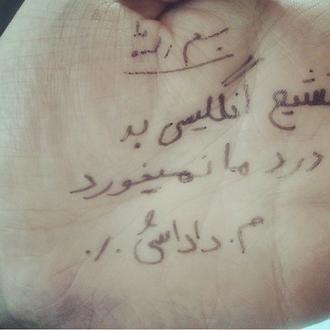 بسم الله
تشیع انگلیسی بد
درد ما نمیخورد
م. داداشی ٪